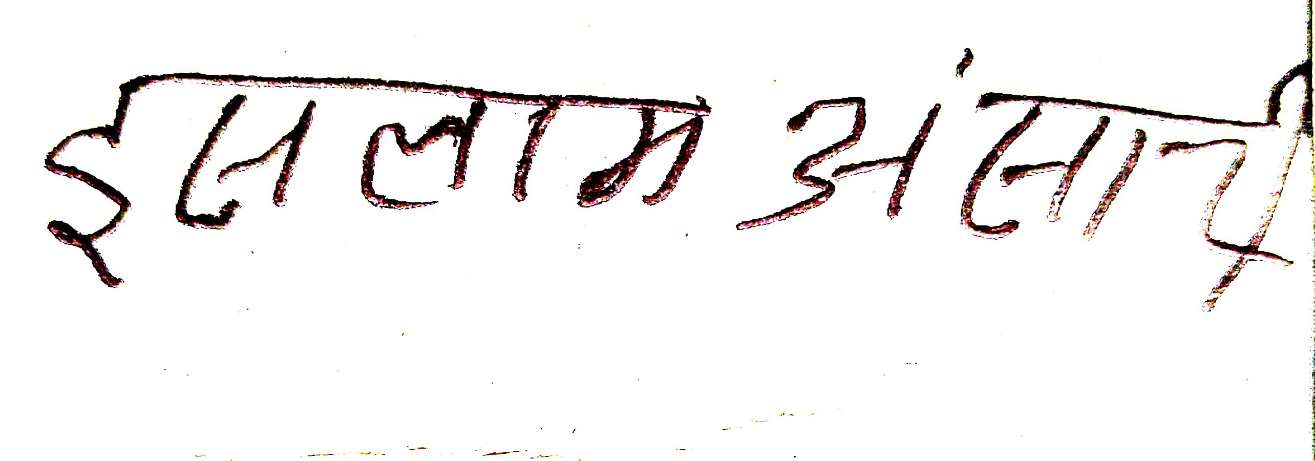 इसलाम अंसारी